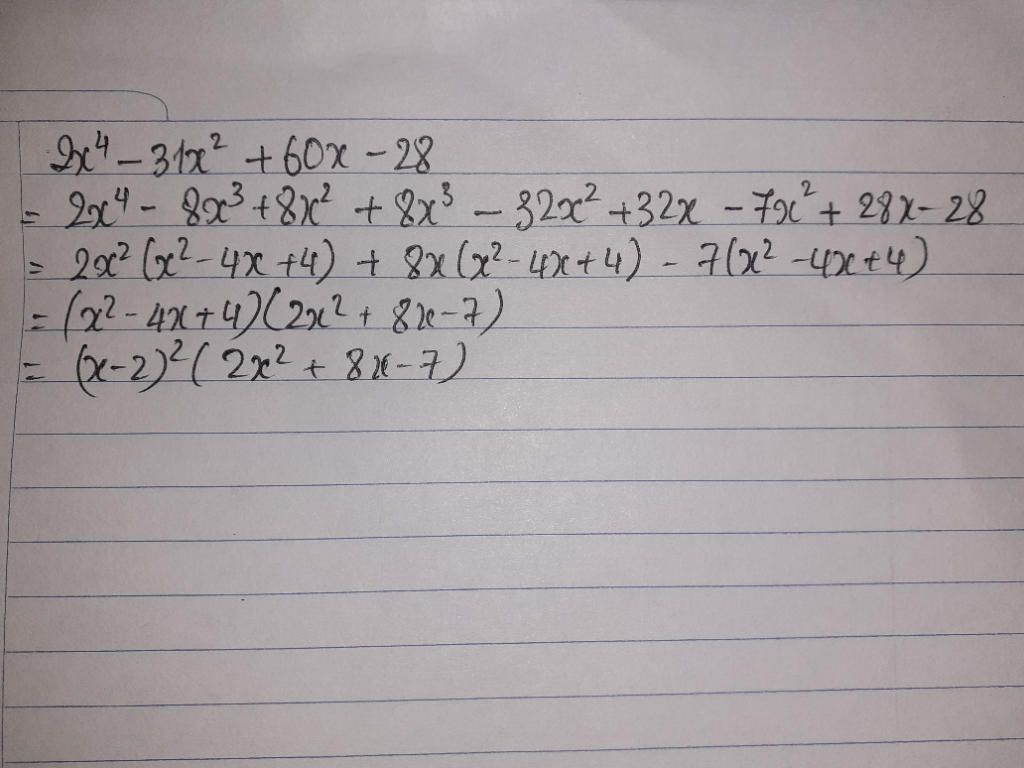 2x⁴ – 31x² + 60x – 28
= 2x⁴ – 8x³ + 8x² + 8x³ – 32x² + 32x – 7x² + 28x – 28
= 2x² (x² – 4x + 4) + 8x (x² – 4x + 4) – 7(x² – 4x + 4)
= (x² – 4x + 4)(2x² + 8x – 7)
= (x – 2)² (2x² + 8x – 7)